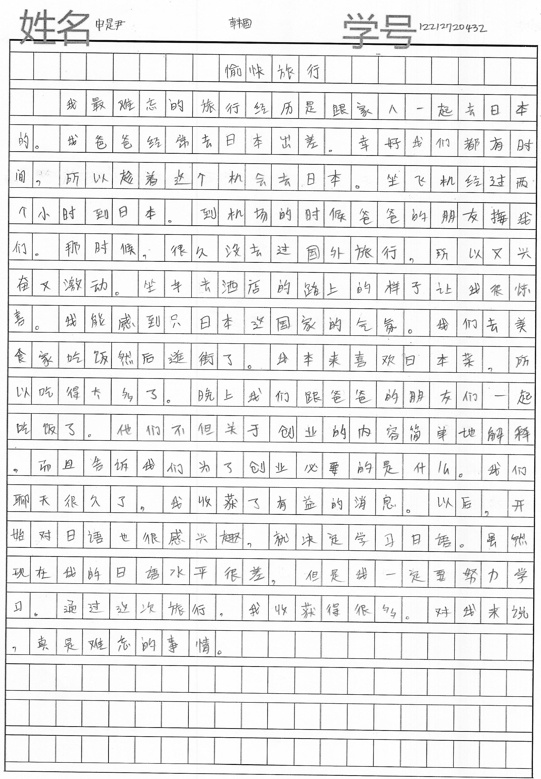 姓名 申是尹 韩国 学号 12212720432
愉快旅行
我最难忘的旅行经历是跟家人一起去日本
的。我爸爸经常去日本出差。幸好我们都有时
间，所以趁着这个机会去日本。坐飞机经过两
个小时到日本。到机场的时候爸爸的朋友接我
们。那时候，很久没去过国外旅行，所以又兴
奋又激动。坐车去酒店的路上的样子让我很惊
喜。我能感到只日本这国家的气氛。我们去美
食家吃饭然后逛街了。我本来喜欢日本菜，所
以吃得太多了。晚上我们跟爸爸的朋友们一起
吃饭了。他们不但关于创业的内容简单地解释
，而且告诉我们为了创业必要的是什么。我们
聊天很久了，我收获了有益的消息。以后，开
始对日语也很感兴趣，就决定学习日语。虽然
现在我的日语水平很差，但是我一定要努力学
习。通过这次旅行，我收获得很多。对我来说
，真是难忘的事情。